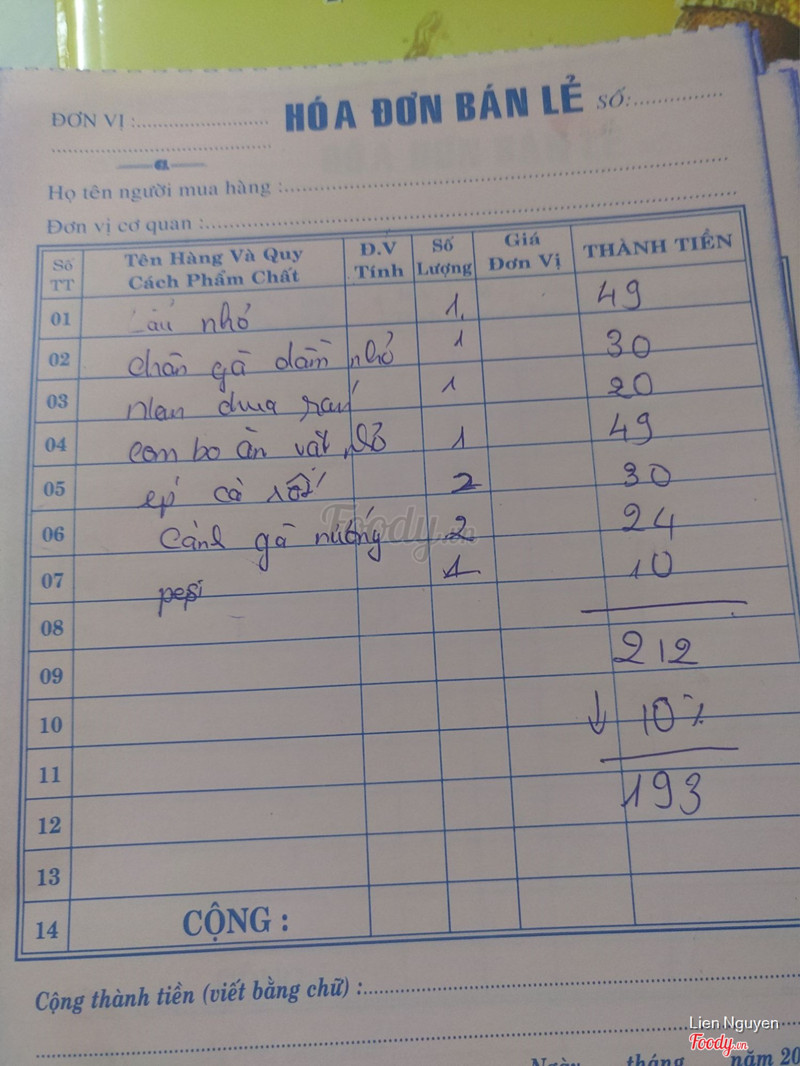 HÓA ĐƠN BÁN LẺ
ĐƠN VỊ :
SỐ:
Họ tên người mua hàng :
Đơn vị cơ quan :
Số TT Tên Hàng Và Quy Cách Phẩm Chất Đ.V Tính Số Lượng Giá Đơn Vị THÀNH TIỀN
01 nhỏ 1 49
02 chân gà dầm nhỏ 1 30
03 1 20
04 combo ăn vặt 1 49
05 ép cà rốt 2 30
06 Cánh gà nướng 2 24
07 pepsi 1 10
08 212
09
10 ↓ 10%
11
12 193
13
14 CỘNG :
Cộng thành tiền (viết bằng chữ) :
Ngày tháng năm 20
Foody.vn
Lien Nguyen
Foody.vn